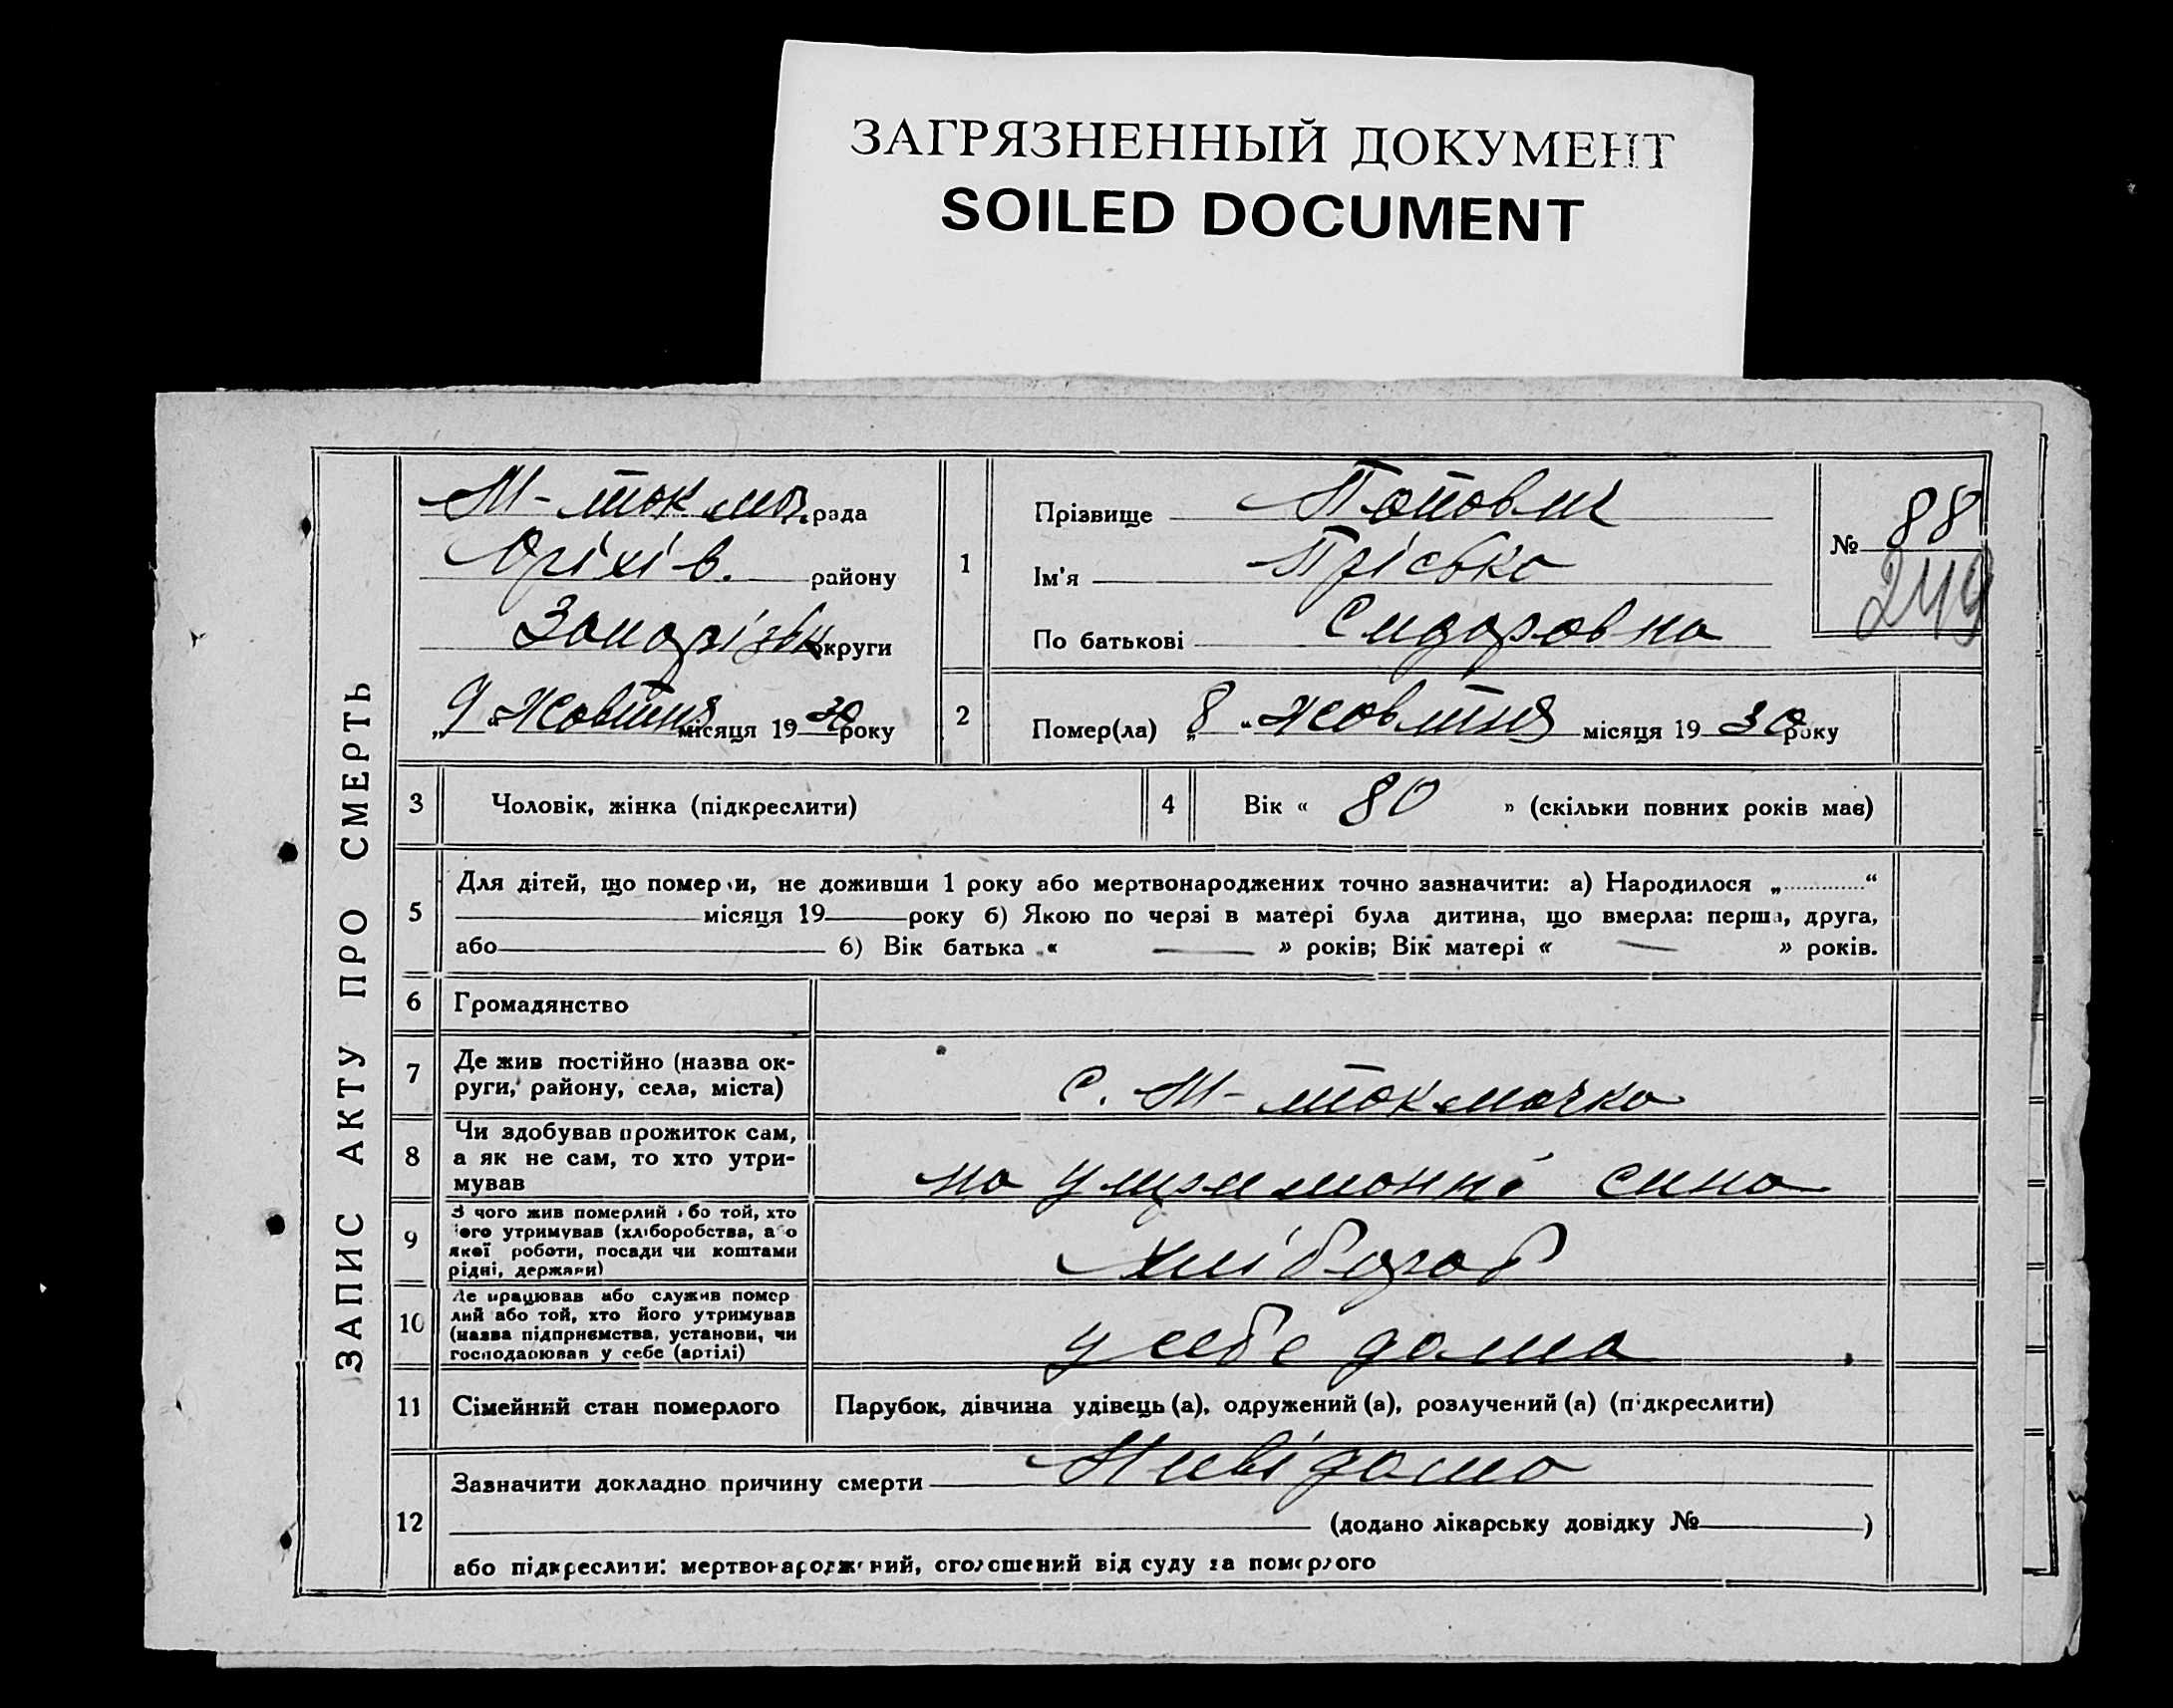 ЗАГРЯЗНЕННЫЙ ДОКУМЕНТ
SOILED DOCUMENT
ЗАПИС АКТУ ПРО СМЕРТЬ
М-токмач. рада
Оріхів. району
Запорізьк округи
„ 9 “ Жовтня місяця 19 30 року
1
Прізвище Попович
Ім'я Пріська
По батькові Сидоровна
№ 88
249
2 Помер(ла) „ 8 “ жовтня місяця 19 30 року
3 Чоловік, жінка (підкреслити)
4 Вік « 80 » (скільки повних років має)
5 Для дітей, що померли, не доживши 1 року або мертвонароджених точно зазначити: а) Народилося „ “
місяця 19 року б) Якою по черзі в матері була дитина, що вмерла: перша, друга,
або б) Вік батька « — » років; Вік матері « — » років.
6 Громадянство
7 Де жив постійно (назва ок-
руги, району, села, міста)
с. М-токмачка
8 Чи здобував прожиток сам,
а як не сам, то хто утри-
мував
на утриманні сина
9 З чого жив померлий або той, хто
його утримував (хліборобства, або
якої роботи, посади чи коштами
рідні, держави)
хлібороб
10 Де працював або служив помер
лий або той, хто його утримував
(назва підприємства, установи, чи
господарював у себе (артілі)
у себе дома
11 Сімейний стан померлого
Парубок, дівчина удівець (а), одружений (а), розлучений (а) (підкреслити)
12 Зазначити докладно причину смерти Невідомо
(додано лікарську довідку № )
або підкреслити: мертвонароджений, оголошений від суду за померлого